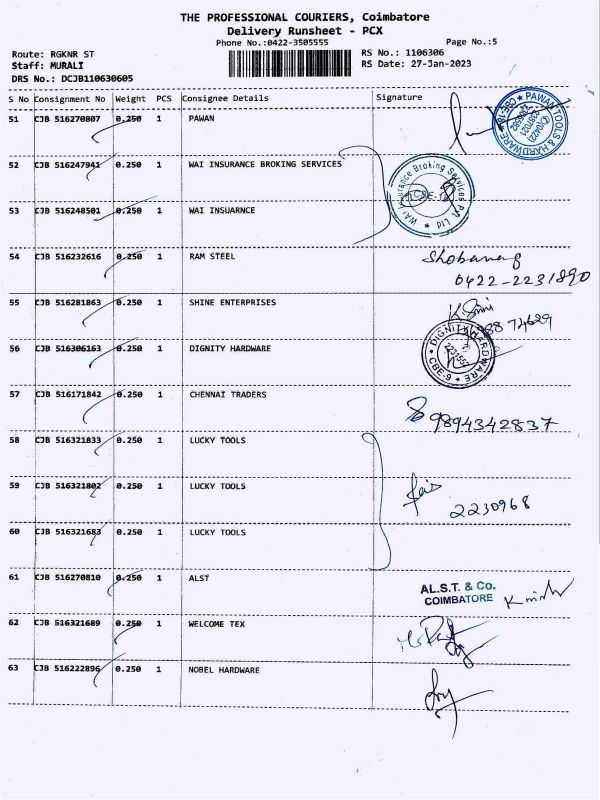 THE PROFESSIONAL COURIERS, Coimbatore
Delivery Runsheet - PCX
Phone No.:0422-3505555 Page No.:5
Route: RGKNR ST RS No.: 1106306
Staff: MURALI RS Date: 27-Jan-2023
DRS No.: DCJB110630605
S No Consignment No Weight PCS Consignee Details Signature
51 CJB 516270807 0.250 1 PAWAN
PAWAN TOOLS & HARDWARE CBE-18
52 CJB 516247941 0.250 1 WAI INSURANCE BROKING SERVICES
WAI Insurance Broking Services Pvt. Ltd
53 CJB 516248501 0.250 1 WAI INSUARNCE
54 CJB 516232616 0.250 1 RAM STEEL
0422-2231890
55 CJB 516281863 0.250 1 SHINE ENTERPRISES
56 CJB 516306163 0.250 1 DIGNITY HARDWARE
DIGNITY HARDWARE CBE-9
57 CJB 516171842 0.250 1 CHENNAI TRADERS
9894342837
58 CJB 516321833 0.250 1 LUCKY TOOLS
59 CJB 516321802 0.250 1 LUCKY TOOLS
2230968
60 CJB 516321683 0.250 1 LUCKY TOOLS
61 CJB 516270810 0.250 1 ALST
AL.S.T. & Co.
COIMBATORE
62 CJB 516321689 0.250 1 WELCOME TEX
63 CJB 516222896 0.250 1 NOBEL HARDWARE